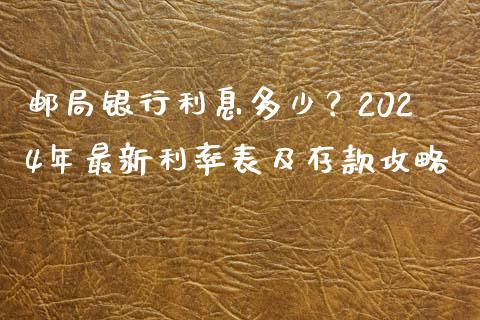 邮局银行利息多少？202
4年最新利率表及存款攻略